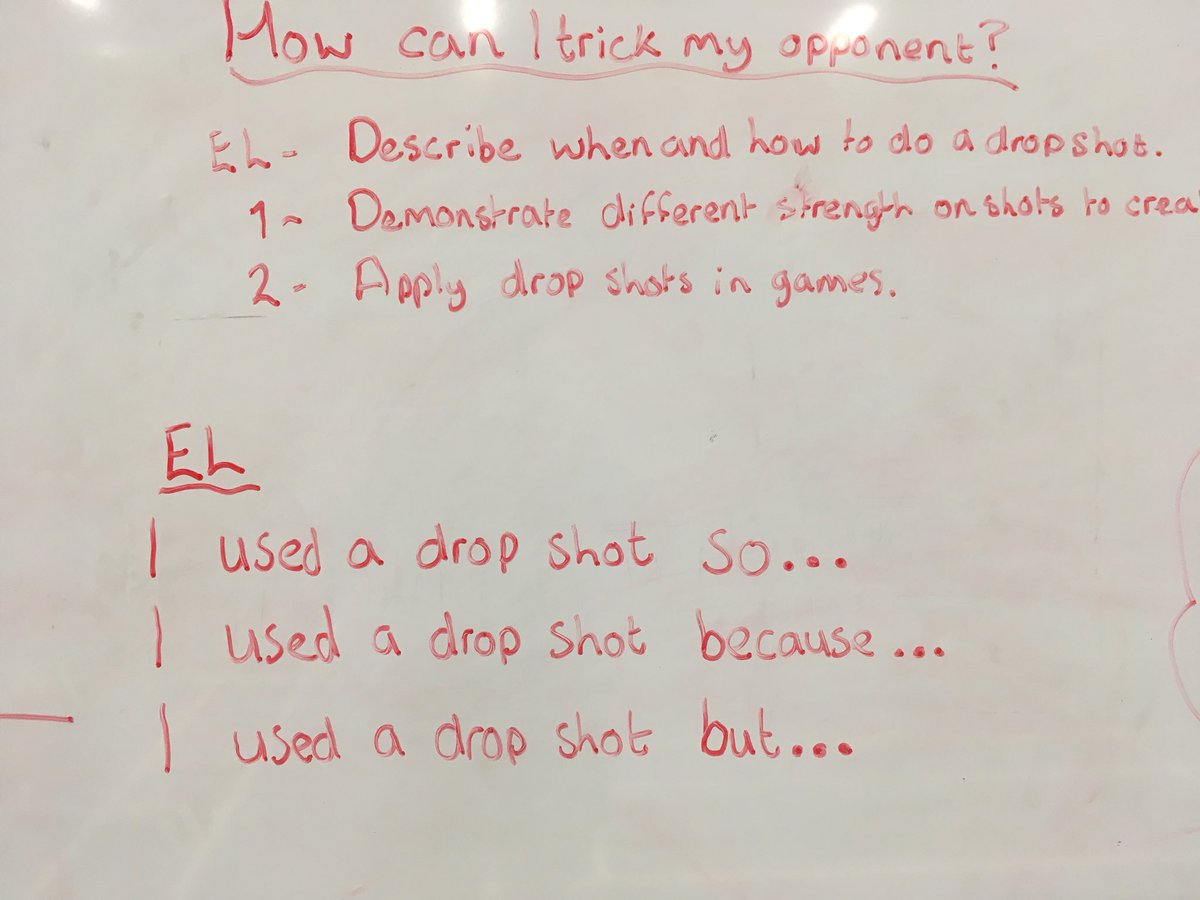 How can I trick my opponent?
EL- Describe when and how to do a drop shot.
1- Demonstrate different strength on shots to crea
2- Apply drop shots in games.
EL
I used a drop shot so...
I used a drop shot because...
I used a drop shot but...